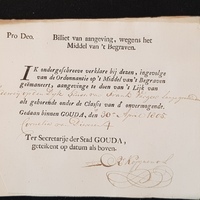 Pro Deo. Billet van aangeving, wegens het
Middel van 't Begraven.
IK ondergeschreeve verklare bij dezen, ingevolge
van de Ordonnantie op 't Middel van 't Begraven
geëmaneert, aangevinge te doen van 't Lijk van
als gehorende onder de Classis van d' onvermogende.
Gedaan binnen GOUDA, den 30e April 1805
Ter Secretarije der Stad GOUDA, ge-
teikent op datum als boven.